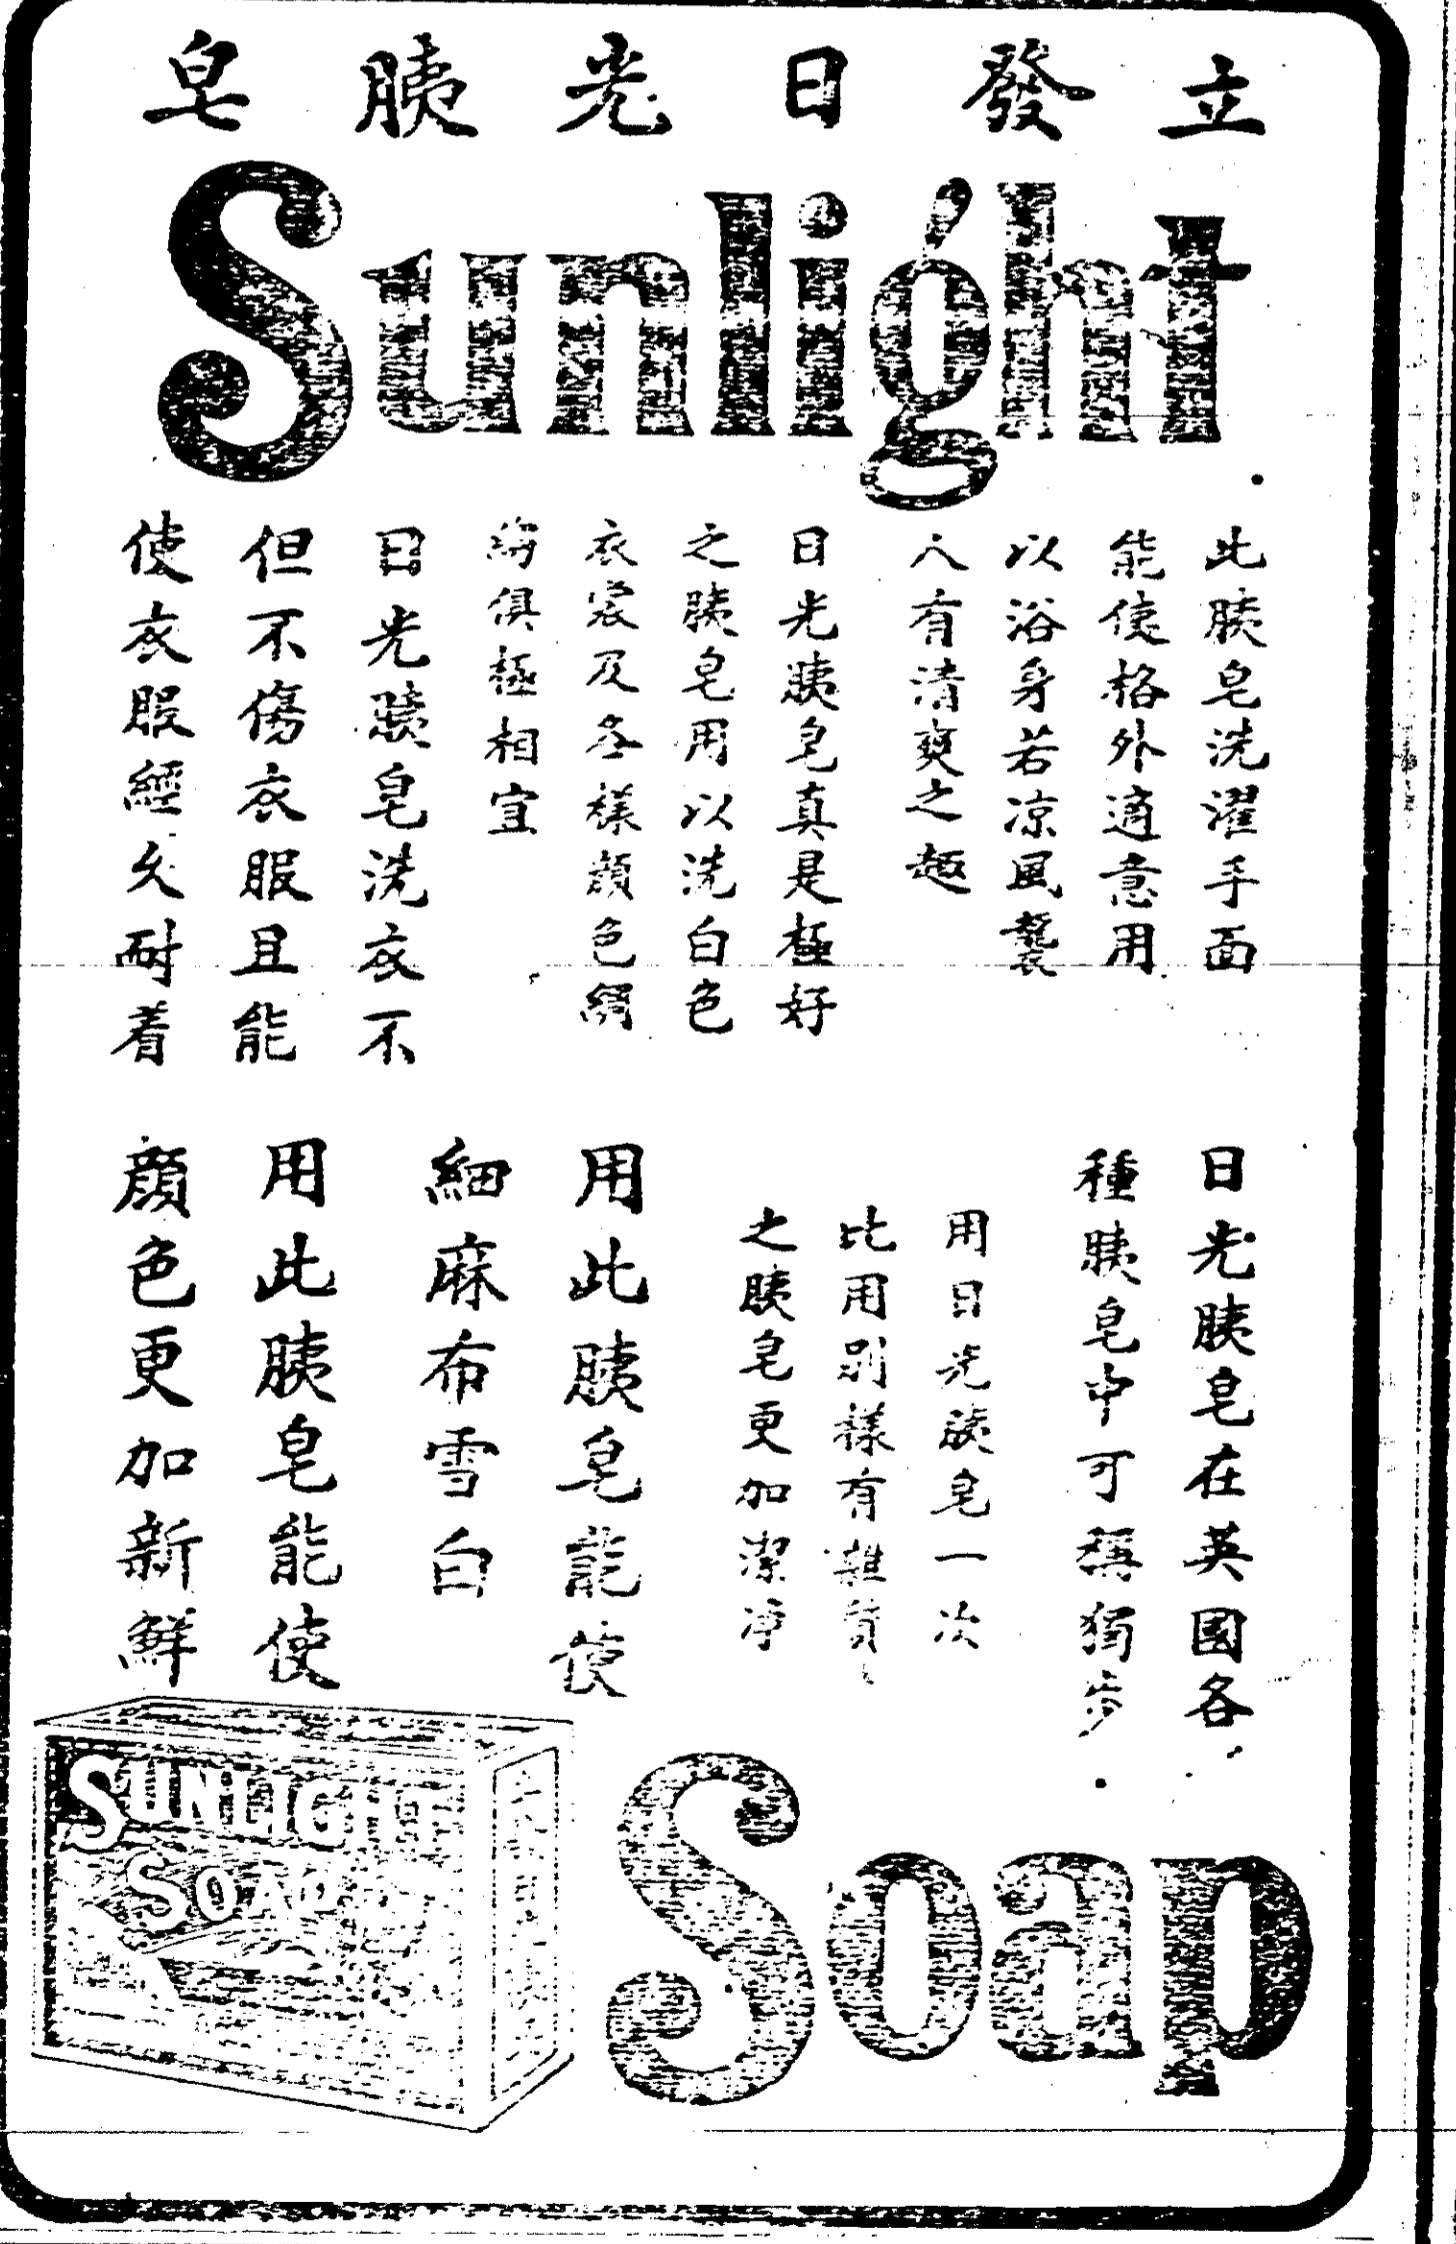 立發日光胰皂
Sunlight
此胰皂洗濯手面
能使格外適意用
以浴身若凉風襲
人有清爽之趣
日光胰皂真是極好
之胰皂用以洗白色
衣裳及各樣顏色綢
俱極相宜
日光胰皂洗衣不
但不傷衣服且能
使衣服經久耐着
日光胰皂在英國各
種胰皂中可稱獨步
用日光胰皂一次
比用別樣有雜質
之胰皂更加潔净
用此胰皂能使
細麻布雪白
用此胰皂能使
顏色更加新鮮
SUNLIGHT
SOAP
Soap